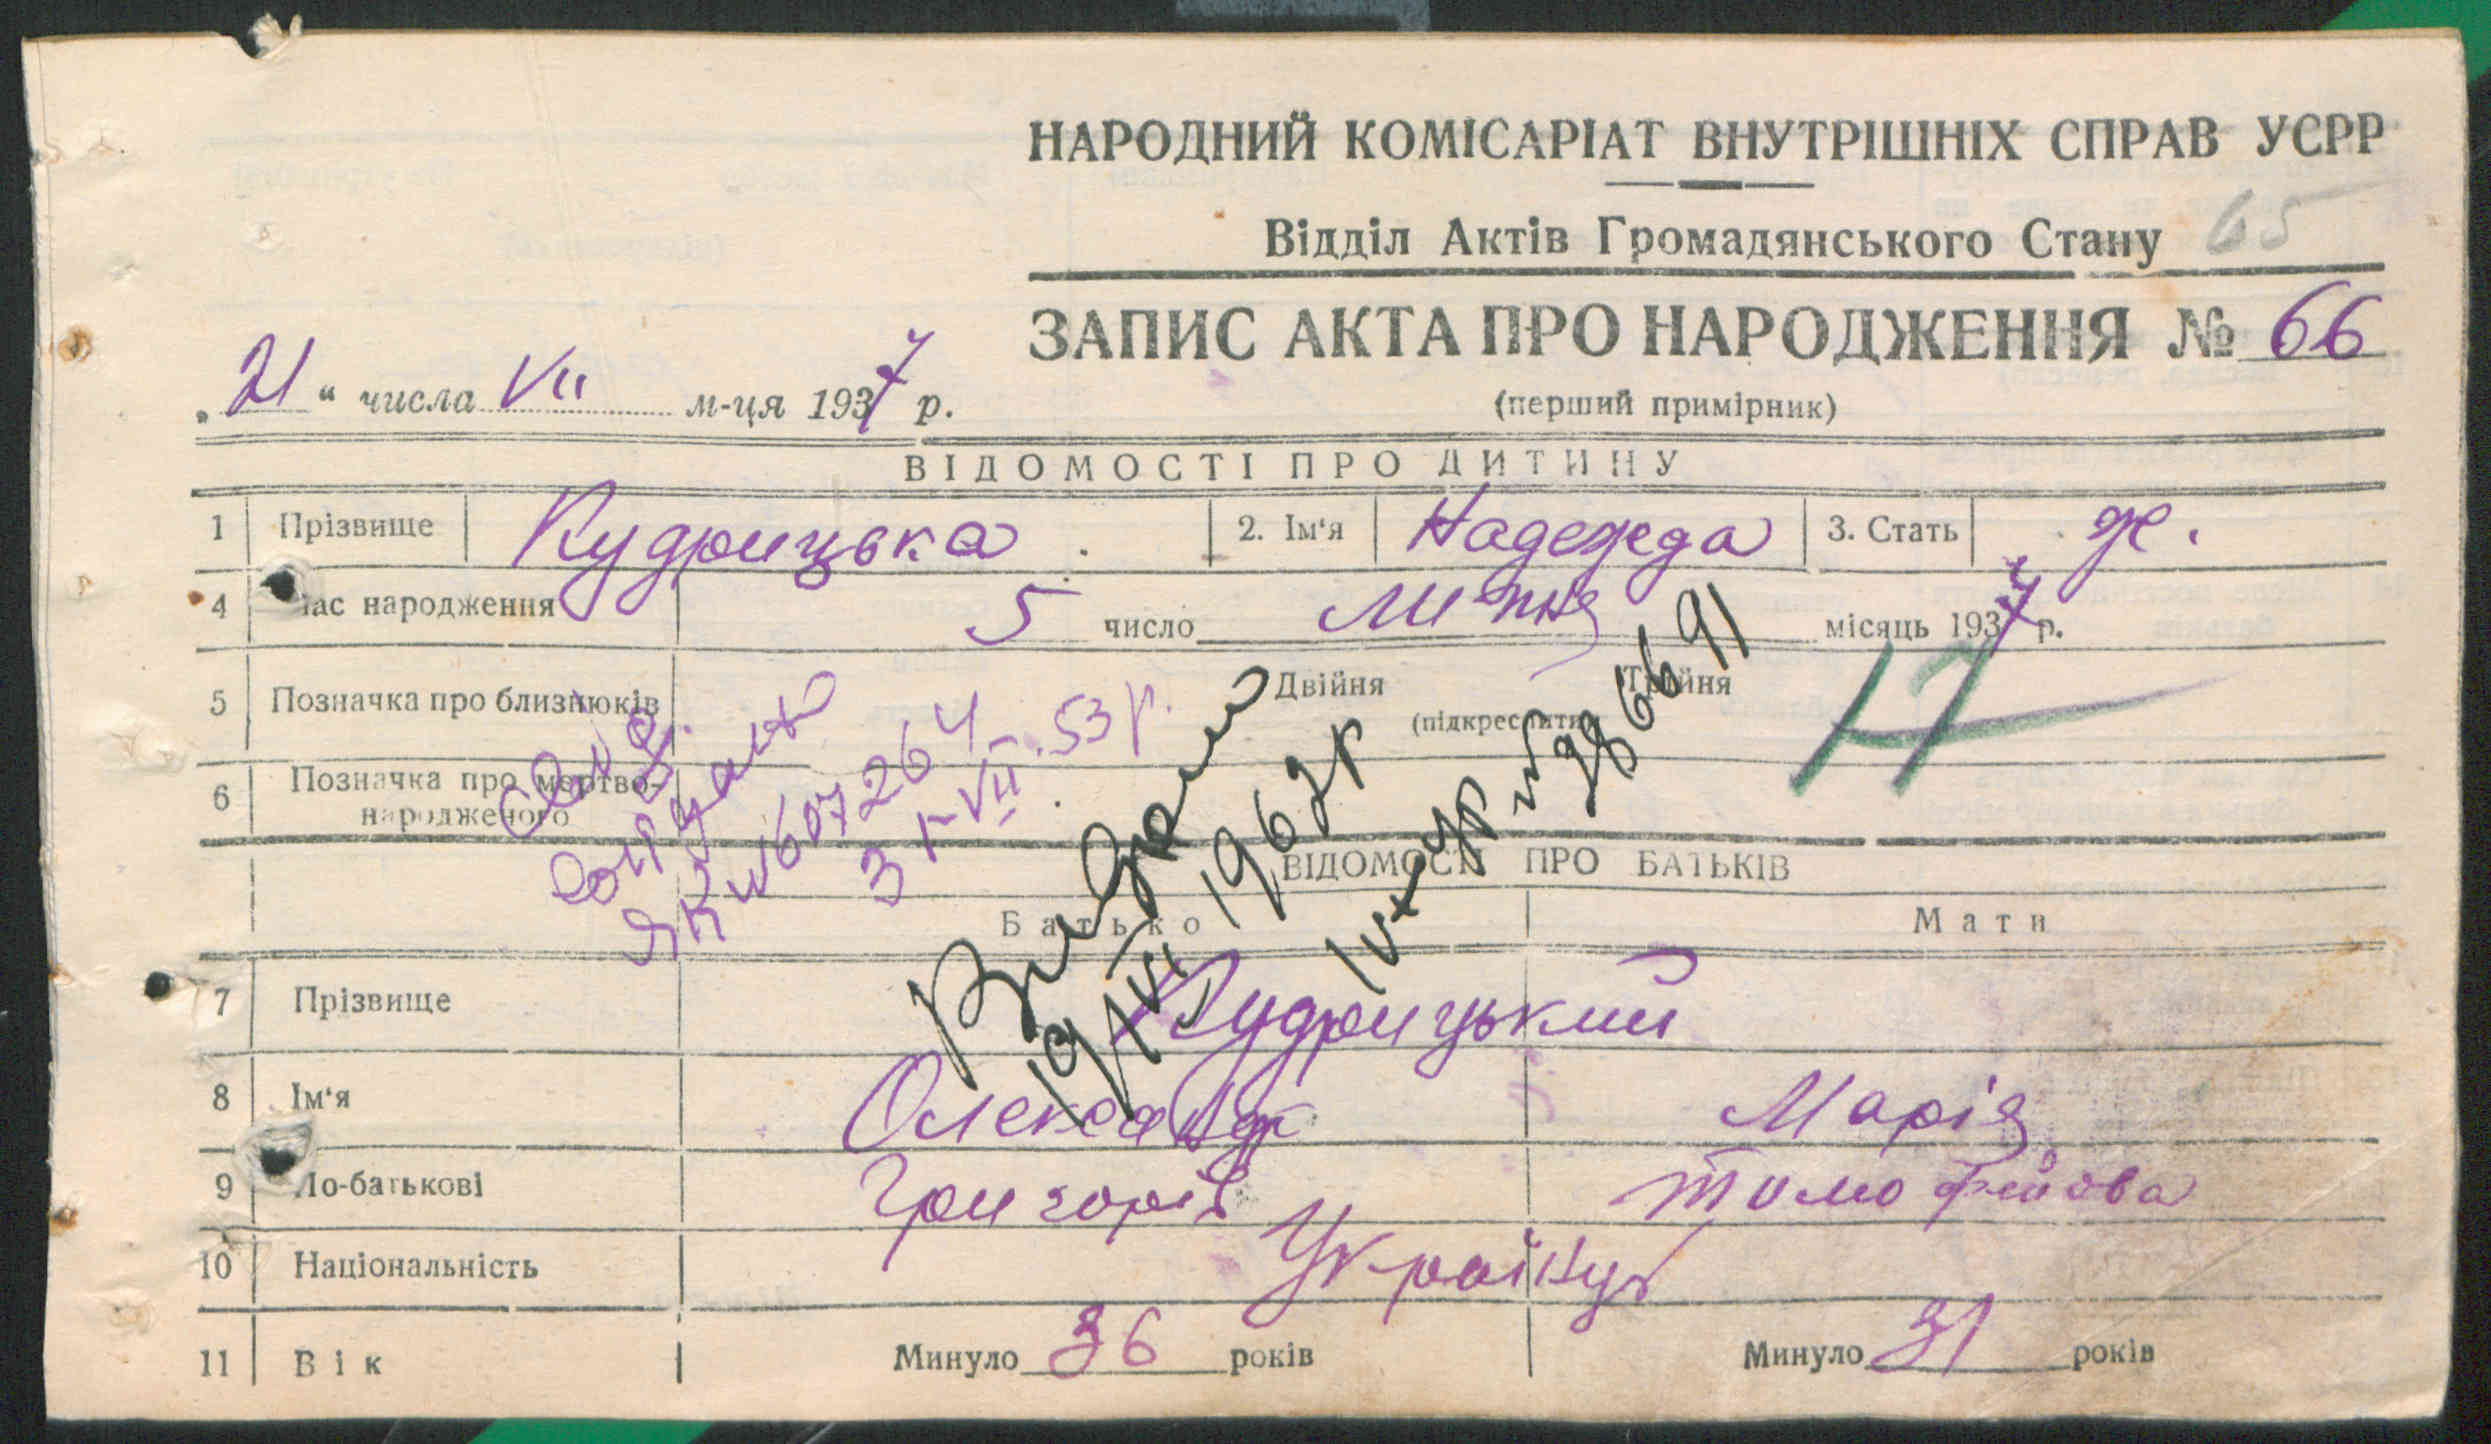 НАРОДНИЙ КОМІСАРІАТ ВНУТРІШНІХ СПРАВ УСРР
Відділ Актів Громадянського Стану 65
ЗАПИС АКТА ПРО НАРОДЖЕННЯ № 66
(перший примірник)
„21“ числа VII м-ця 1937 р.
ВІДОМОСТІ ПРО ДИТИНУ
1 Прізвище Кудрицька 2. Ім‘я Надежда 3. Стать ж.
4 Час народження 5 число липня місяць 1937 р.
5 Позначка про близнюків Двійня Трійня
(підкреслити)
6 Позначка про мертво-
народженого
ЯК № 607264
3/VII.53 р.
Видано
19/VI 1962 р
IV-УР № 386691
Н
ВІДОМОСТІ ПРО БАТЬКІВ
Батько Мати
7 Прізвище Кудрицький
8 Ім‘я Олександр Марія
9 По-батькові Григорів Тимофійова
10 Національність Українці
11 Вік Минуло 36 років Минуло 31 років